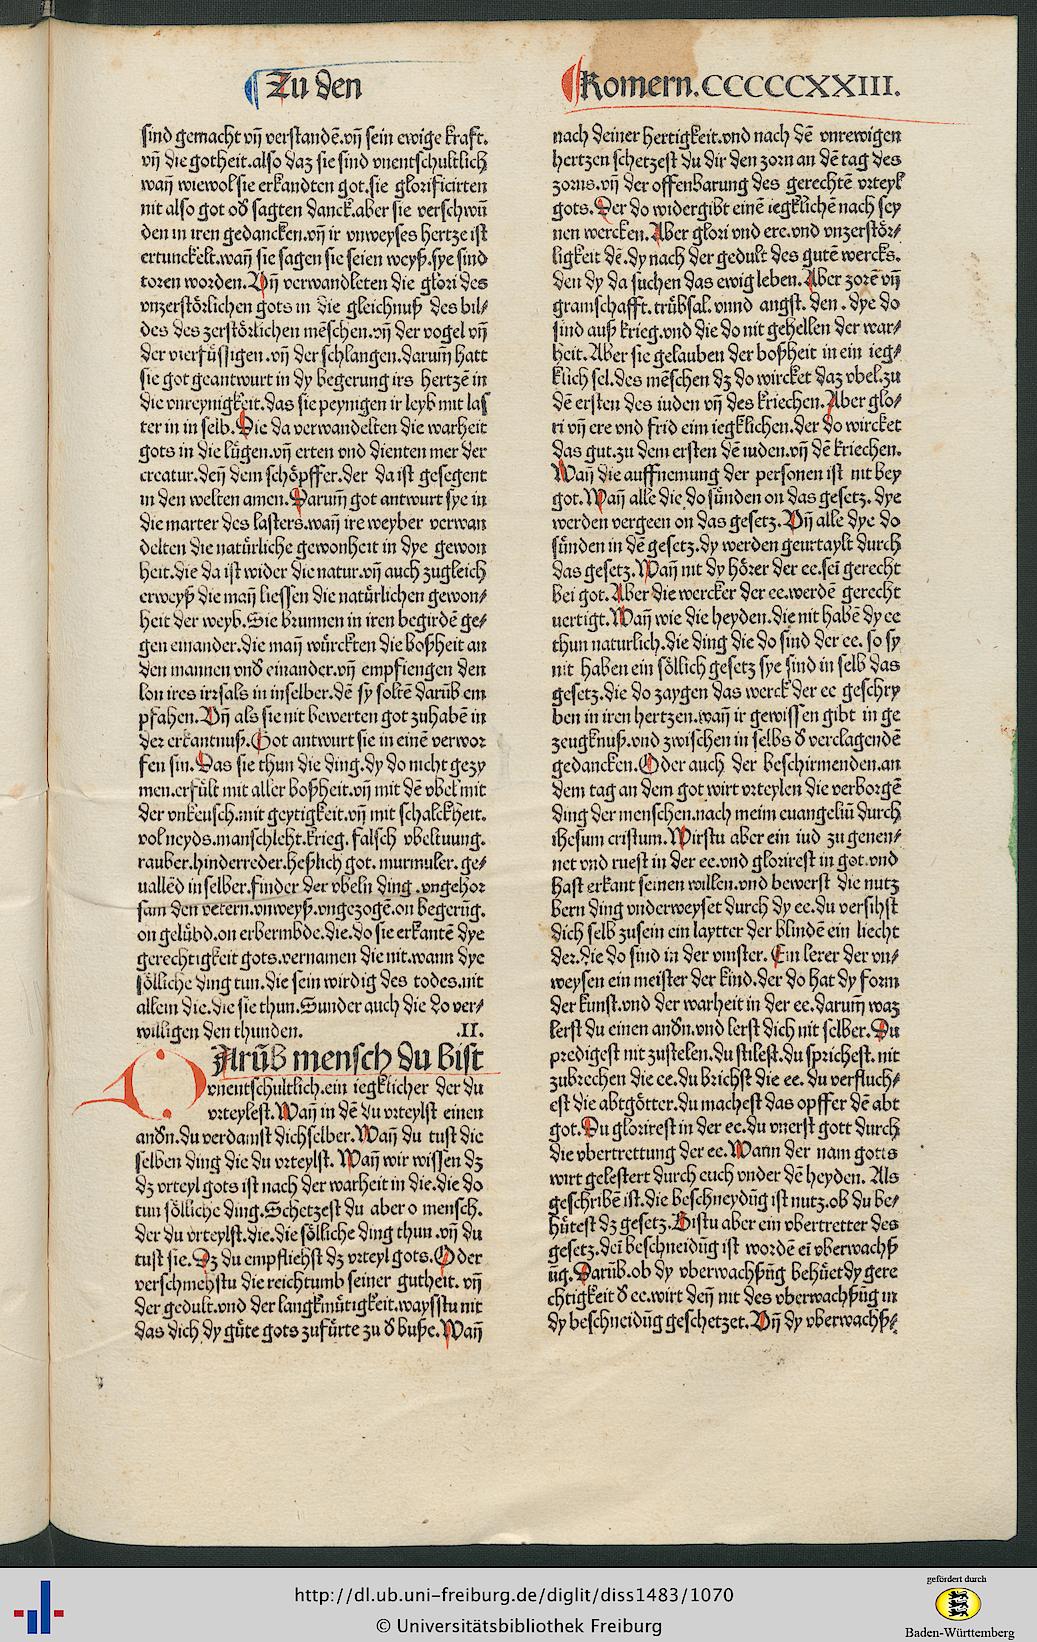 Zu den
Romern. CCCCCXXIII.
sind gemacht vñ verstandē.vñ sein ewige kraft.
vñ die gotheit.also daz sie sind vnentschultlich
wañ wiewol sie erkandten got.sie glorificirten
nit also got oď sagten danck.aber sie verschwū
den in iren gedancken.vñ ir vnweyses hertze ist
ertunckelt.wañ sie sagen sie seien weyß.sye sind
toren worden.Vñ verwandleten die glori des
vnzerstörlichen gots in die gleichnuß des bil⸗
des des zerstörlichen mēschen.vñ der vogel vñ
der vierfüssigen.vñ der schlangen.darum̄ hatt
sie got geantwurt in dy begerung irs hertzē in
die vnreynigkeit.das sie peynigen ir leyb mit las
ter in in selb.Die da verwandelten die warheit
gots in die lügen.vñ erten vnd dienten mer der
creatur.deñ dem schöpffer.der da ist gesegent
in den welten amen.Darum̄ got antwurt sye in
die marter des lasters.wañ ire weyber verwan
delten die natürliche gewonheit in dye gewon
heit.die da ist wider die natur.vñ auch zugleich
erweyß die mañ liessen die natürlichen gewon⸗
heit der weyb.Sie brunnen in iren begirdē ge⸗
gen einander.die mañ würckten die boßheit an
den mannen vnď einander.vñ empfiengen den
lon ires irrsals in inselber.dē sy soltē darūb em
pfahen.Vñ als sie nit bewerten got zuhabē in
der erkantnuß.Got antwurt sie in einē verwor
fen sin.Das sie thun die ding.dy do nicht gezy
men.erfült mit aller boßheit.vñ mit dē vbel mit
der vnkeusch.mit geytigkeit.vñ mit schalckheit.
vol neyds.manschleht.krieg.falsch vbeltuung.
rauber.hinderreder.heßlich got.murmuler.ge⸗
uallēd in selber.finder der vbeln ding.vngehor
sam den vetern.vnweyß.vngezogē.on begerūg.
on gelübd.on erbermbde.die.do sie erkantē dye
gerechtigkeit gots.vernamen die nit.wann dye
sölliche ding tun.die sein wirdig des todes.nit
allein die.die sie thun.Sunder auch die do ver⸗
willigen den thunden. .II.
DArūb mensch du bist
vnentschultlich.ein iegklicher der du
vrteylest.Wañ in dē du vrteylst einen
anďn.du verdamst dich selber.Wañ du tust die
selben ding die du vrteylst. Wañ wir wissen dz
dz vrteyl gots ist nach der warheit in die.die do
tun sölliche ding.Schetzest du aber o mensch.
der du vrteylst.die.die sölliche ding thun.vñ du
tust sie.Dz du empfliehst dz vrteyl gots.Oder
verschmehstu die reichtumb seiner gutheit. vñ
der gedult.vnd der langkmütigkeit.waysstu nit
das dich dy güte gots zufürte zu ď buße.Wañ
nach deiner hertigkeit.vnd nach dē vnrewigen
hertzen schetzest du dir den zorn an dē tag des
zorns.vñ der offenbarung des gerechtē vrteyl
gots.Der do widergibt einē iegklichē nach sey
nen wercken.Aber glori vnd ere.vnd vnzerstör⸗
ligkeit dē.dy nach der gedult des gutē wercks.
den dy da suchen das ewig leben.Aber zorē vñ
gramschafft.trübsal.vnnd angst.den.dye do
sind auß krieg.vnd die do nit gehellen der war⸗
heit.Aber sie gelauben der boßheit in ein ieg⸗
klich sel.des mēschen dz do wircket daz vbel.zu
dē ersten des iuden vñ des kriechen.Aber glo⸗
ri vñ ere vnd frid eim iegklichen.der do wircket
das gut.zu dem ersten dē iuden.vñ dē kriechen.
Wañ die auffnemung der personen ist nit bey
got.Wañ alle die do sünden on das gesetz. dye
werden vergeen on das gesetz.Vñ alle dye do
sünden in dē gesetz.dy werden geurtaylt durch
das gesetz.Wañ nit dy hörer der ee.sei gerecht
bei got.Aber die wercker der ee.werdē gerecht
uertigt.Wañ wie die heyden.die nit habē dy ee
thun naturlich.die ding die do sind der ee. so sy
nit haben ein söllich gesetz sye sind in selb das
gesetz.die do zaygen das werck der ee geschry
ben in iren hertzen.wañ ir gewissen gibt in ge
zeugknuß.vnd zwischen in selbs ď verclagendē
gedancken.Oder auch der beschirmenden.an
dem tag an dem got wirt vrteylen die verborgē
ding der menschen.nach meim euangeliū durch
ihesum cristum.Wirstu aber ein iud zu genen⸗
net vnd ruest in der ee.vnd glorirest in got.vnd
hast erkant seinen willen.vnd bewerst die nutz
bern ding vnderweyset durch dy ee.du versihst
dich selb zusein ein laytter der blindē ein liecht
der.die do sind in der vinster. Ein lerer der vn⸗
weysen ein meister der kind.der do hat dy form
der kunst.vnd der warheit in der ee.darum̄ waz
lerst du einen anďn.vnd lerst dich nit selber.Du
predigest nit zustelen.du stilest.du sprichest.nit
zubrechen die ee.du brichst die ee. du verfluch⸗
est die abtgötter.du machest das opffer dē abt
got.Du glorirest in der ee.du vnerst gott durch
die vbertrettung der ee.Wann der nam gotts
wirt gelestert durch euch vnder dē heyden. Als
geschribē ist.die beschneydūg ist nutz.ob du be⸗
hütest dz gesetz.Bistu aber ein vbertretter des
gesetz.dei beschneidūg ist wordē ei vberwachß
ūg.Darūb.ob dy vberwachßūg behüet dy gere
chtigkeit ď ee.wirt deñ nit des vberwachßūg in
dy beschneidūg geschetzet.Vñ dy vberwachß⸗
http://dl.ub.uni-freiburg.de/diglit/diss1483/1070
© Universitätsbibliothek Freiburg
gefördert durch
Baden-Württemberg